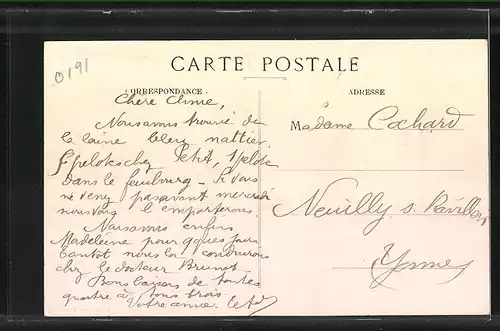 0191
CARTE POSTALE
CORRESPONDANCE
ADRESSE
Chère Amie,
Nous avons trouvé de
la laine bleu nattier.
pelotes chez Petit, 1 pelote
dans le faubourg - Si vous
ne venez pas avant mercredi
nous vous l'emporterons.
Nous avons enfin
Madeleine pour qques jours
tantôt nous la conduirons
chez le docteur Brunet.
Bons baisers de toutes
quatre à tous trois
Votre amie.
Madame Cochard
Neuilly s.
Yonne